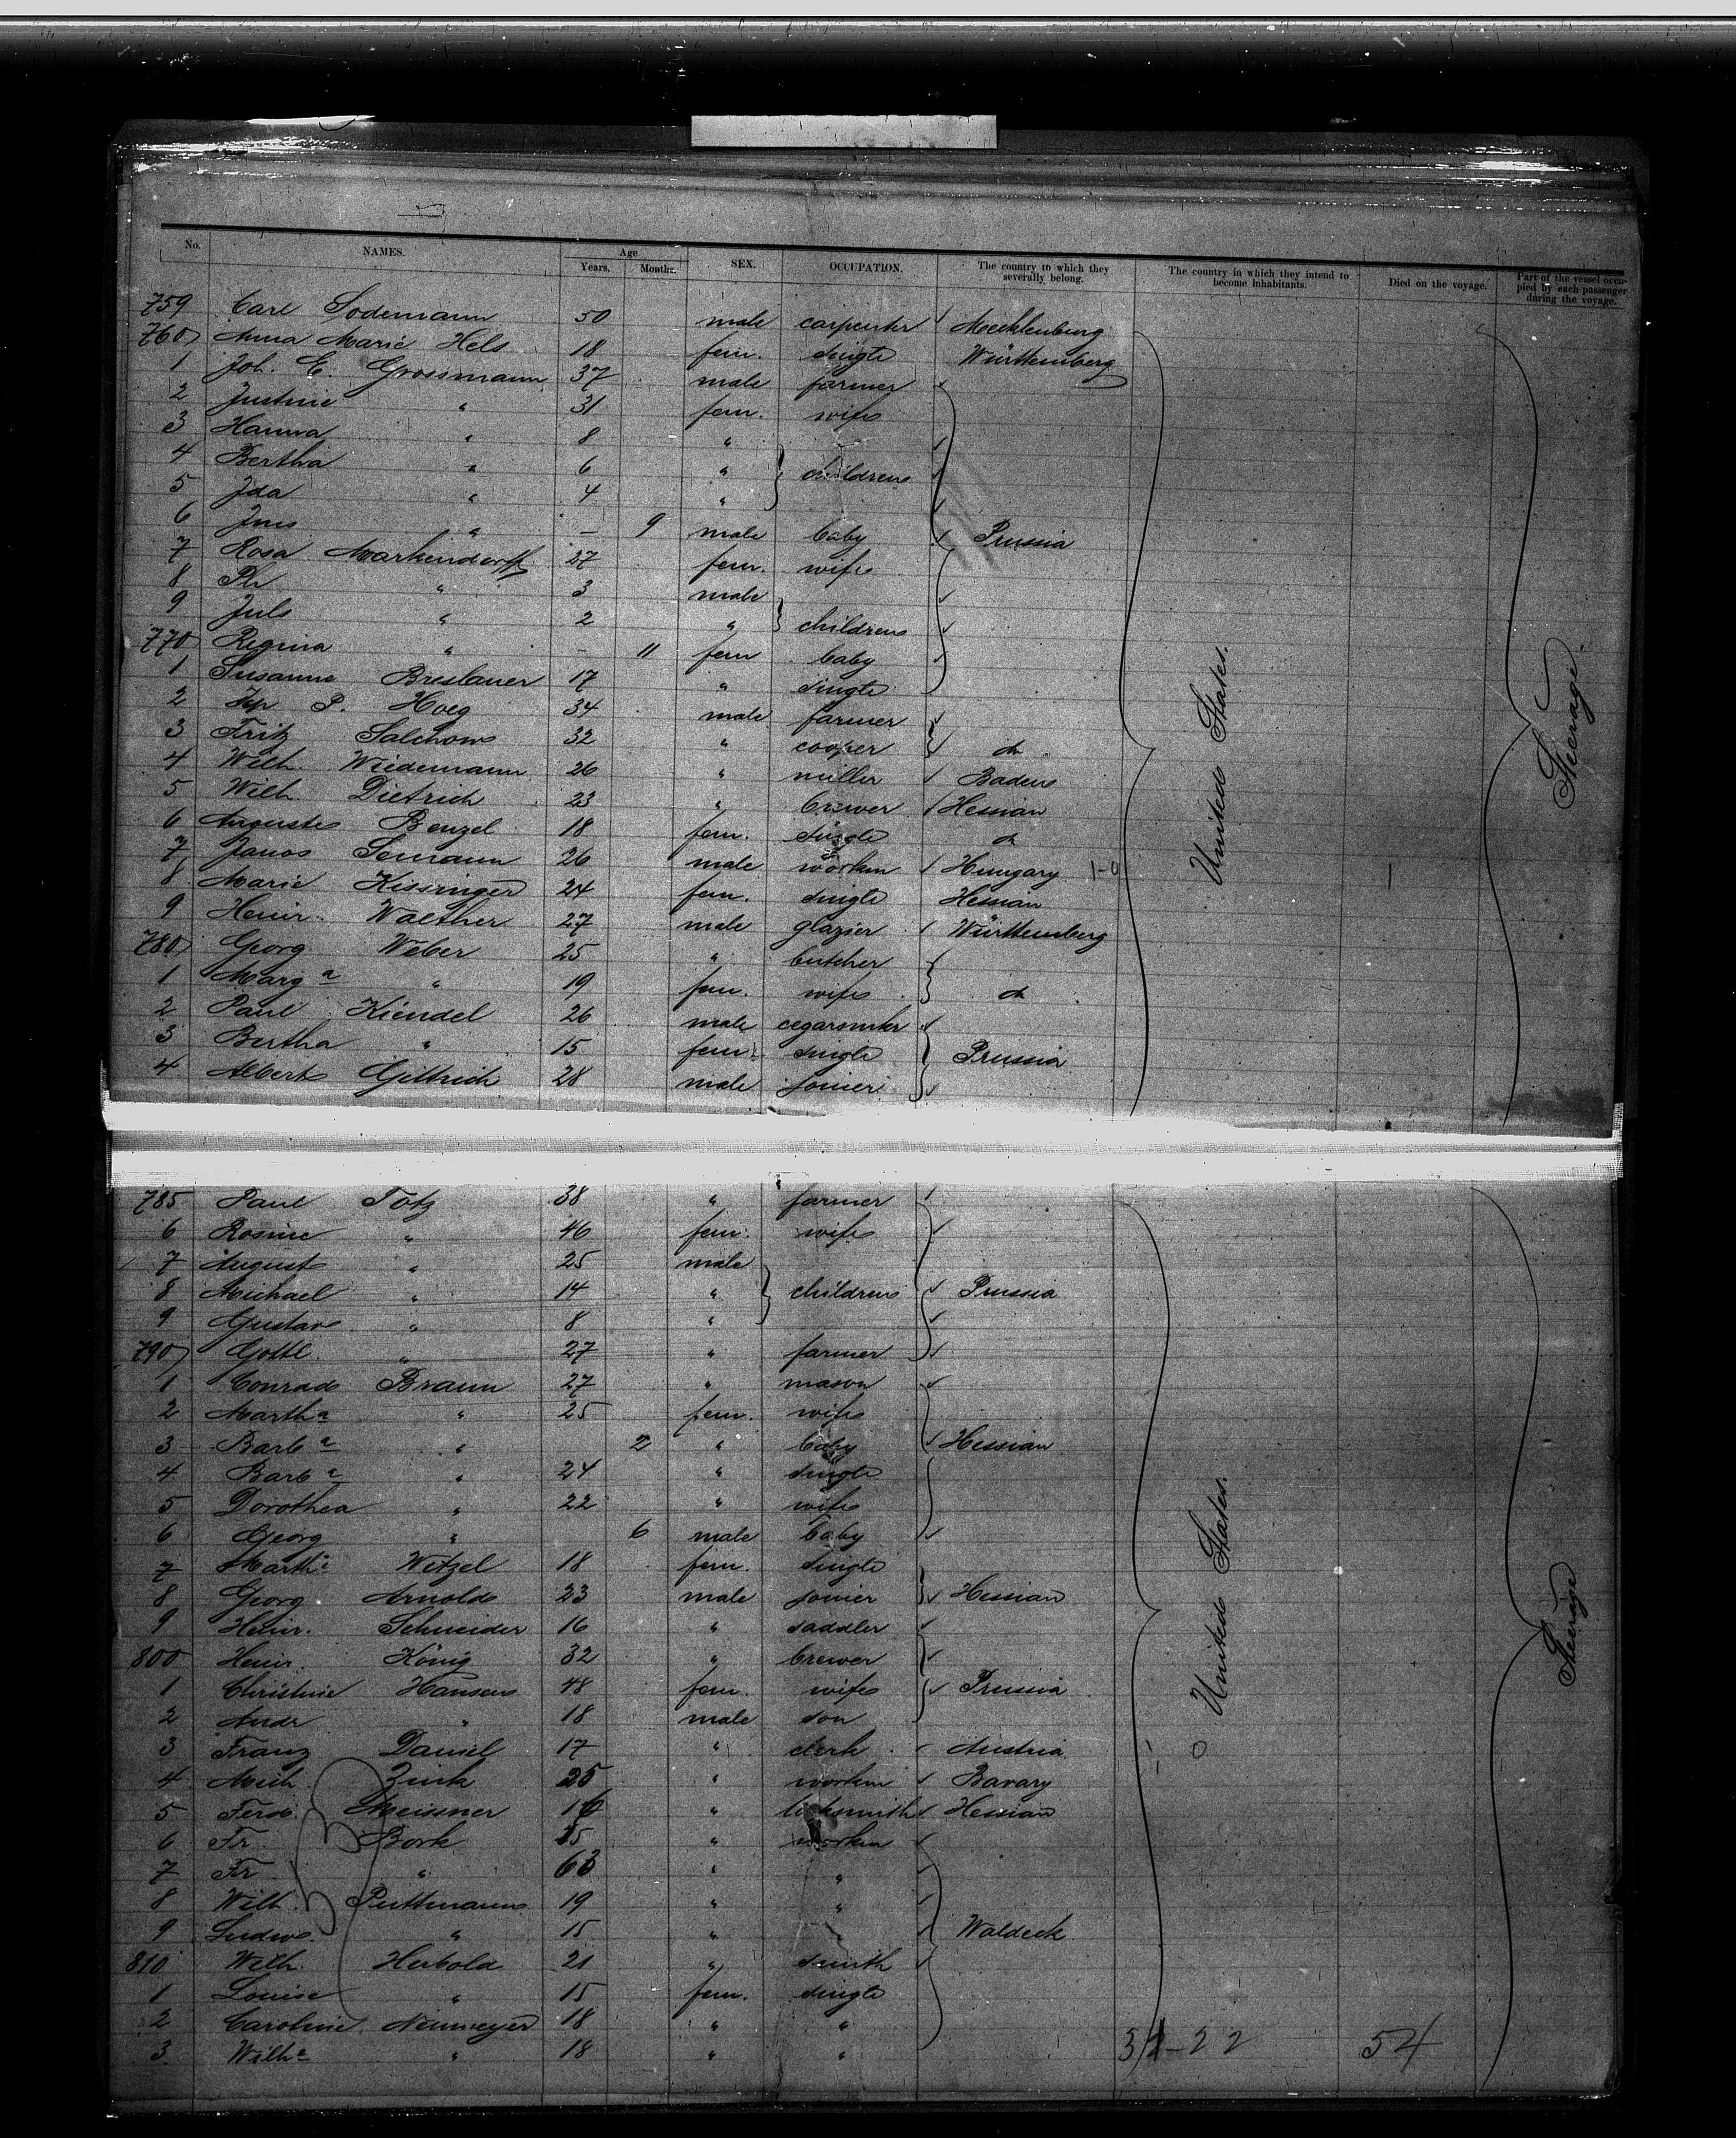 No. NAMES. Age Years. Months. SEX. OCCUPATION. The country to which they severally belong. The country in which they intend to become inhabitants. Died on the voyage. Part of the vessel occupied by each passenger during the voyage.
759 Carl Sodemann 50 male carpenter Mecklenburg
760 Anna Marie Hels 18 fem. single Württemberg
1 Joh. E. Grossmann 37 male farmer
2 Justine " 31 fem. wife
3 Hanna " 8 "
4 Bertha " 6 " childrens
5 Ida " 4 "
6 " – 9 male baby Prussia
7 Rosa Markendorff 27 fem. wife
8 Ph " 3 male
9 Juls " 2 " childrens
770 Regina " – 11 fem baby
1 Susanne Breslauer 17 " single
2 P. Hoeg 34 male farmer
3 Fritz Salchow 32 " cooper do
4 Wilh. Wiedemann 26 " miller Baden
5 Wilh. Dietrich 23 " brewer Hessian
6 Auguste Benzel 18 fem. single do
7 Janos Semann 26 male workm Hungary 1-0 1
8 Marie Kissinger 24 fem. single Hessian
9 Heinr. Walther 27 male glazier Württemberg
780 Georg Weber 25 " butcher
1 Marga " 19 fem. wife do
2 Paul Kiendel 26 male cegarsmker
3 Bertha " 15 fem. single Prussia
4 Albert Gittrich 28 male joiner
United States.
Steerage.
785 Paul Totz 38 " farmer
6 Rosine " 46 fem. wife
7 August " 25 male
8 Michael " 14 " childrens Prussia
9 Gustav " 8 "
790 Gottl. " 27 " farmer
1 Conrad Braun 27 " mason
2 Martha " 25 fem. wife
3 Barba " 2 " baby Hessian
4 Barba " 24 " single
5 Dorothea " 22 " wife
6 Georg " 6 male baby
7 Martha Wetzel 18 fem. single
8 Georg Arnold 23 male joiner Hessian
9 Heinr. Schneider 16 " saddler
800 Heinr. König 32 " brewer
1 Christine Hansen 48 fem. wife Prussia
2 Andr " 18 male son
3 Franz Daniel 17 " clerk Austria 1 0
4 Mich. Zink 25 " workm Bavary
5 Ferd. Meissner 16 " locksmith Hessian
6 Fr. Bork 15 " workm
7 Fr. " 63 " "
8 Wilh. Puttmann 19 " "
9 Ludw. " 15 " Waldeck
810 Wilh. Herbold 21 " smith
1 Louise " 15 fem. single
2 Caroline Neumeyer 18 " "
3 Wilha " 18 " "
United States.
Steerage
22 54